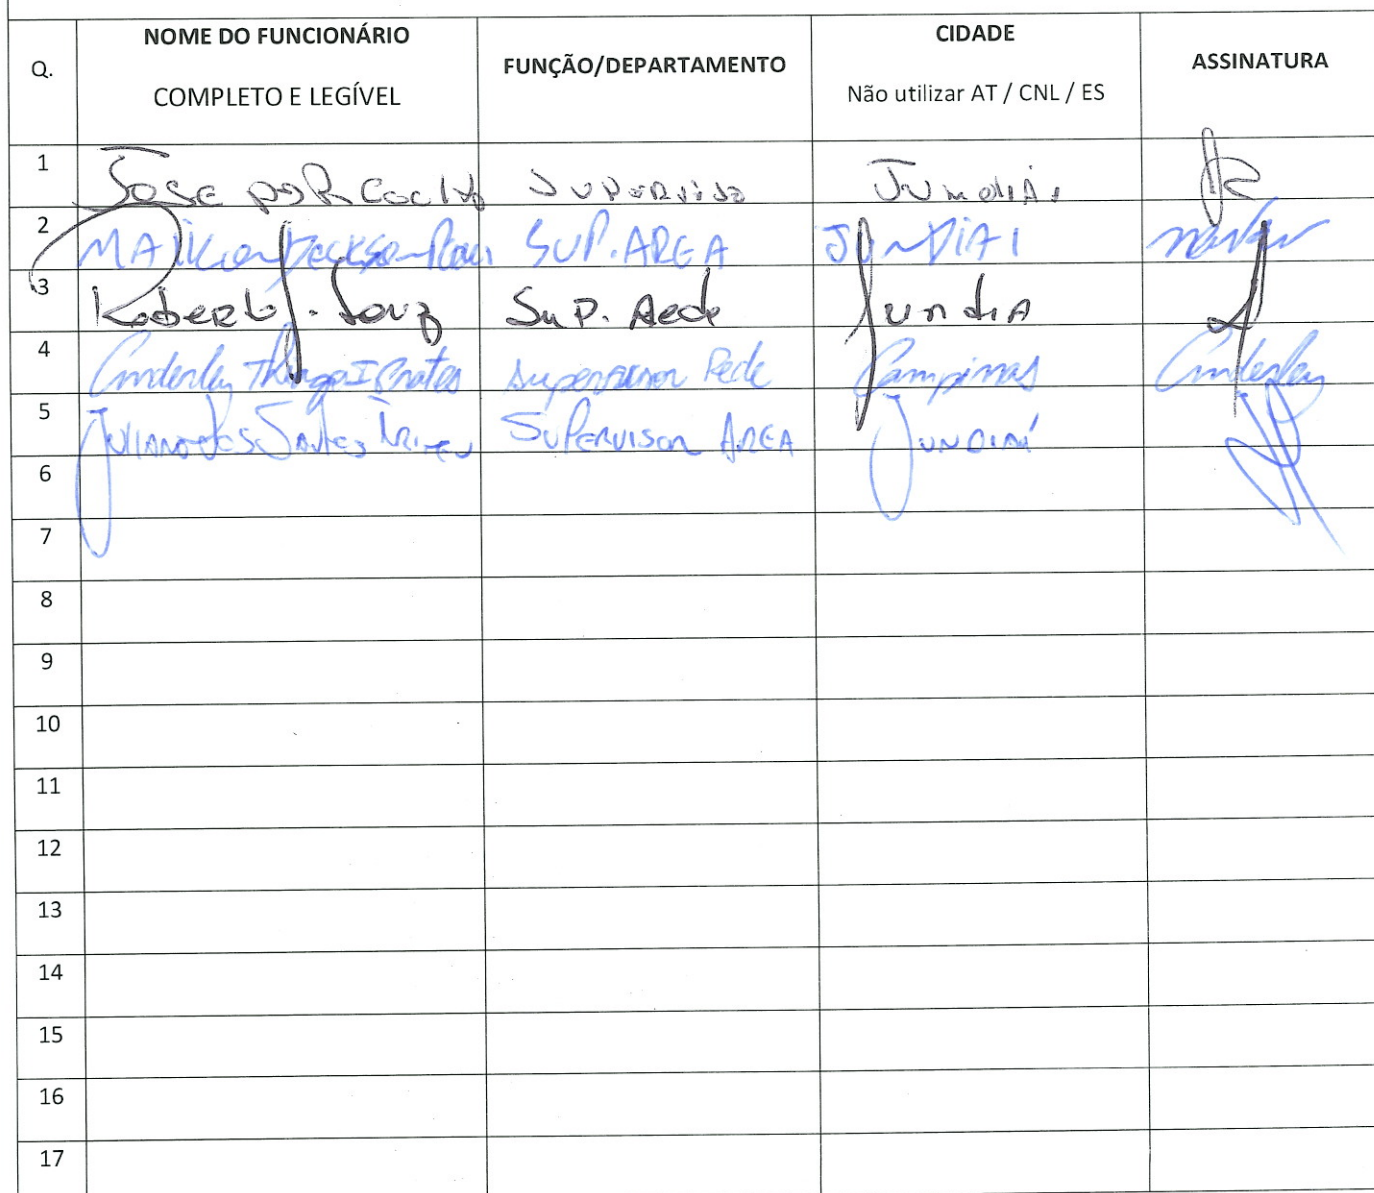 NOME DO FUNCIONÁRIO
COMPLETO E LEGÍVEL
Q.
FUNÇÃO/DEPARTAMENTO
CIDADE
Não utilizar AT / CNL / ES
ASSINATURA
1 Jose Supervisor Jundiai
2 Jackson SUP. AREA JUNDIAI
3 Roberto J. Souz Sup. Rede Jundia
4 Thiago supervisor Rede Campinas
5 Juliano dos Santos SUPERVISOR AREA JUNDIAÍ
6
7
8
9
10
11
12
13
14
15
16
17